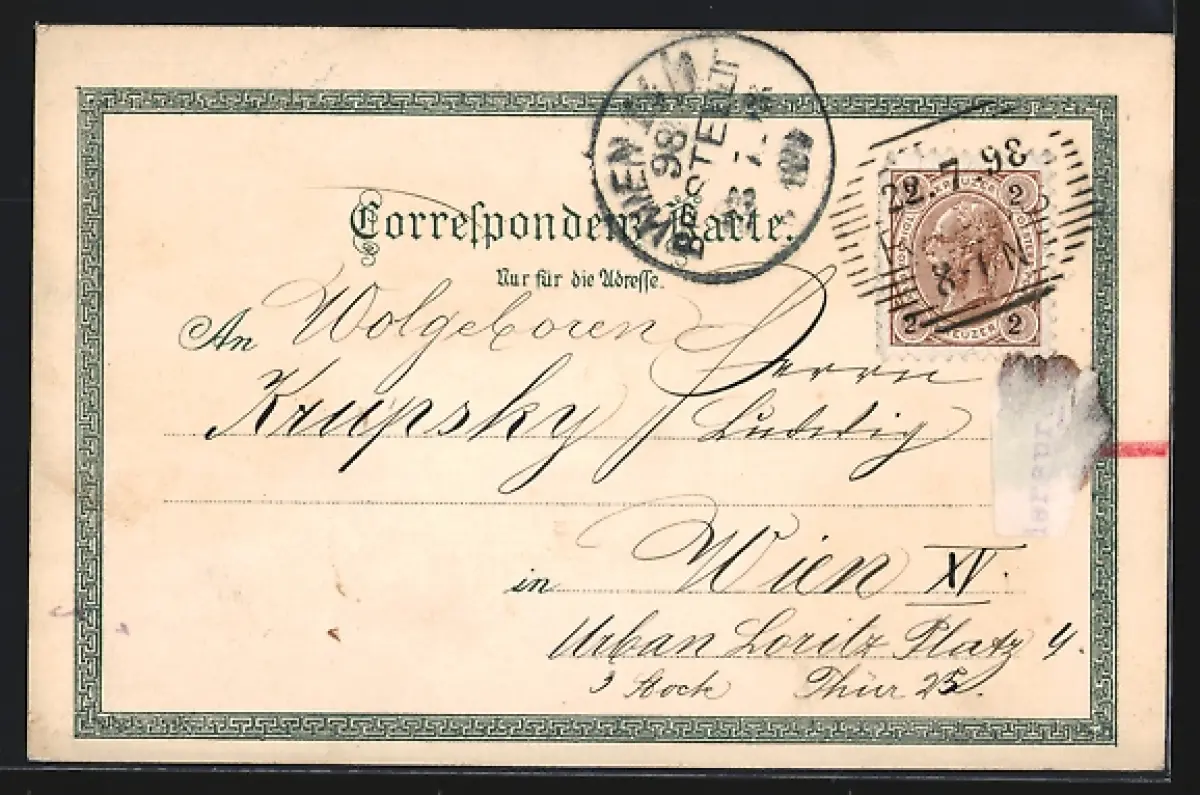 WIEN
98
BESTELLT
22.7.98
8-1N
KREUZER
2 2
2 2
Correspondenz-Karte.
Nur für die Adresse.
An Wolgeboren Herrn
Krupsky Ludwig
in Wien XV.
Urban Loritz Platz 4.
3 Stock Thür 25.